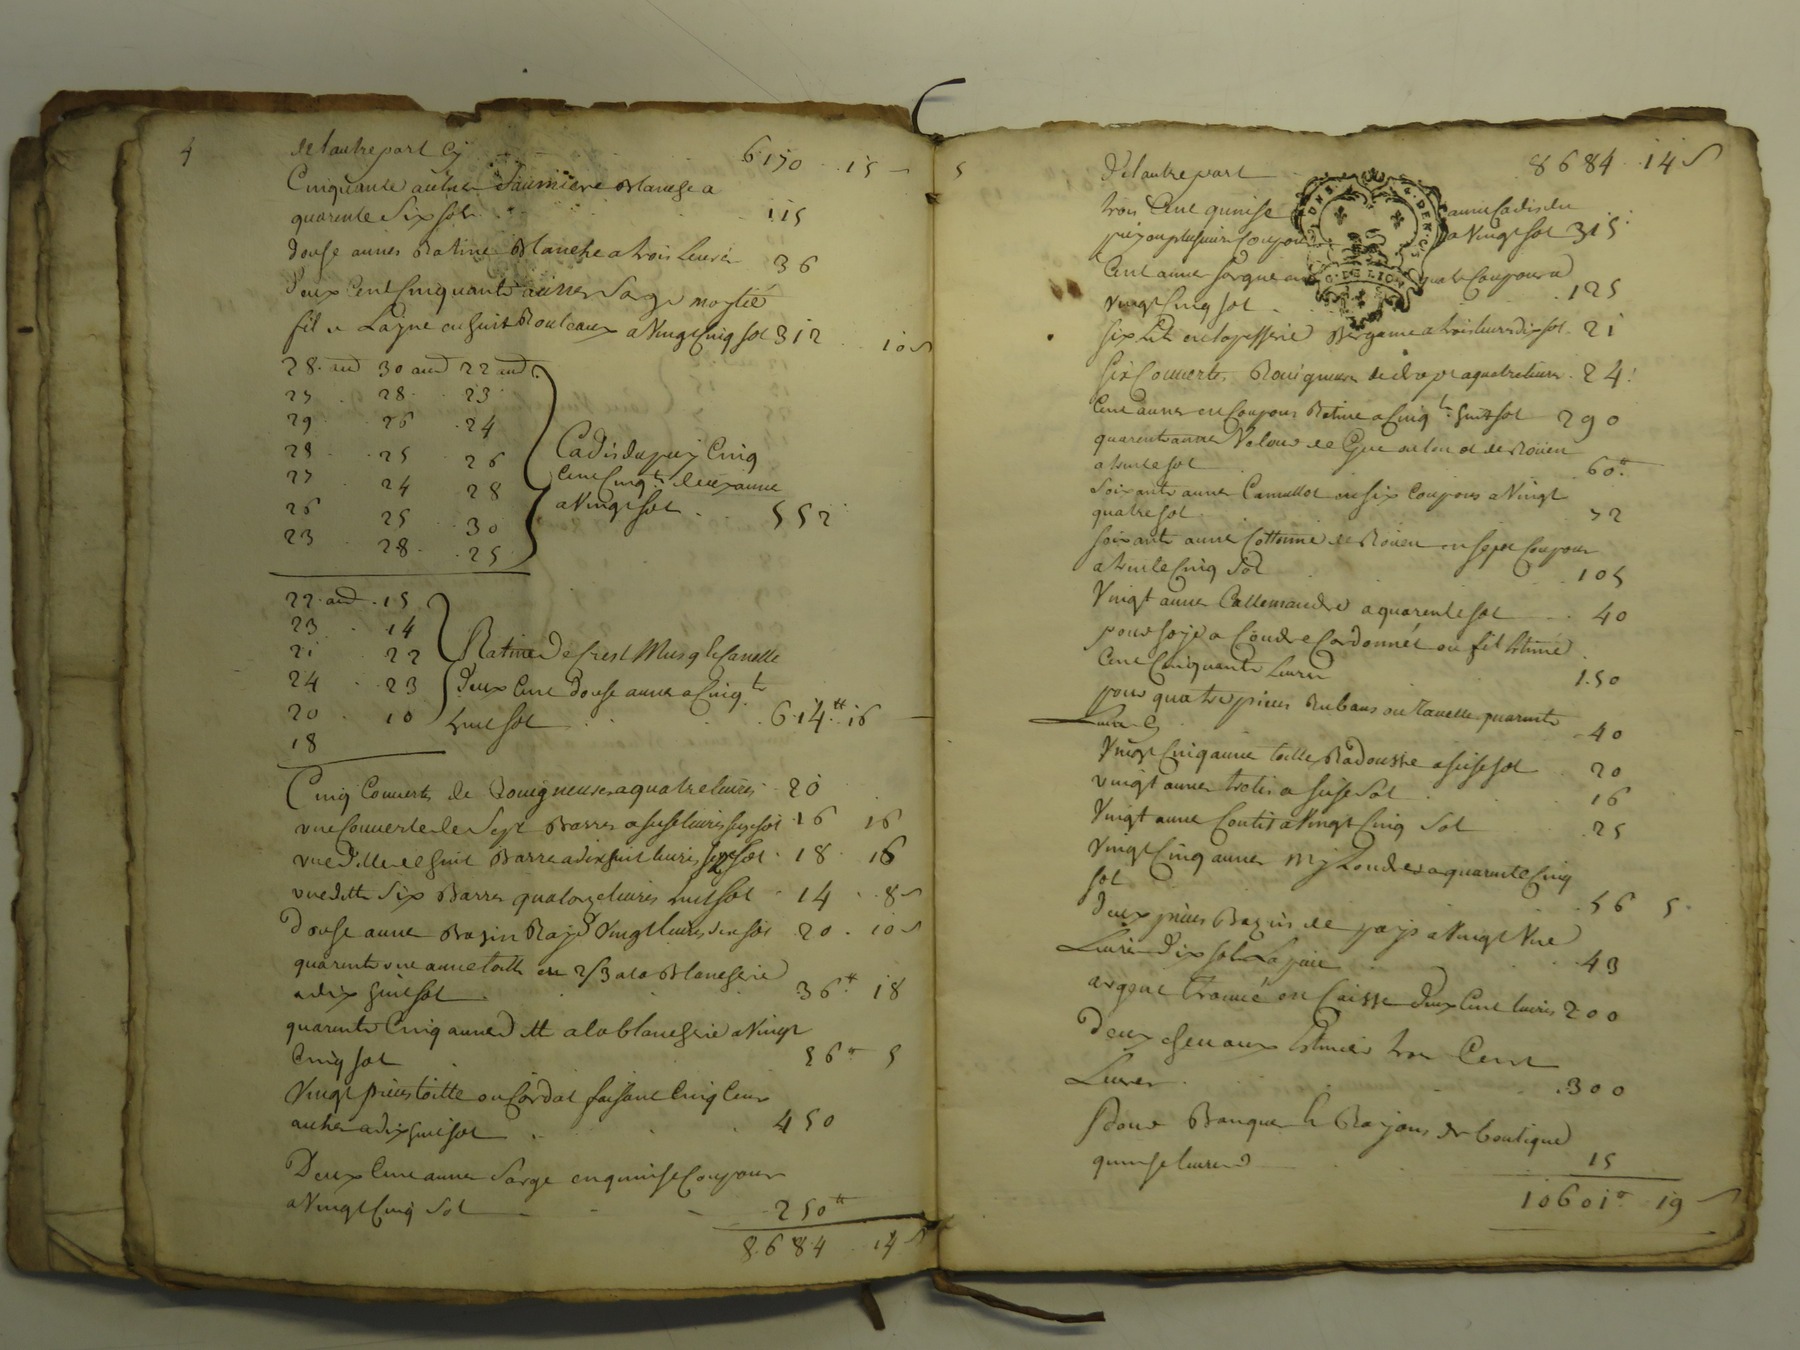 4
de l'autre part Cy 6150 15
Cinquante aulnes Blanche a
quarente Six sols 115
douse aunes Ratine Blanche a trois Leivres 36
Deux Cent Cinquante aunes Sarge moytié
fil et Layne en huit Rouleaux a Vingt Cinq sol 312 10 s
28 au 30 au 22 au
27 28 23
29 26 24
28 25 26
27 24 28
26 25 30
23 28 25
Cadis du puy Cinq
Cent Cinqte deux aune
a Vingt sol 552
22 au 15
23 14
21 22
24 23
20 10
18
Ratine De Crest Musq et Canelle
Deux Cent douse aune a Cinqte
huit sol 614 tt 16
Cinq Couverte de a quatre livres 20
une Couverte de Sept Barres a sese livres sese sol 16 16
une ditte de huit Barre a dix huit livres sese sol 18 16
une ditte Six Barres quatorze livres huit sol 14 8 s
Douse aune Basin Rayé Vingt livres dix sol 20 10 s
quarente une aune toille en 2/3 a la Blancherie
a dix huit sol 36 tt 18
quarente Cinq aune D tt a la blancherie a Vingt
Cinq sol 56 5
Vingt pieces toille ou Cordat faisant Cinq Cens
aulnes a dix huit sol 450
Deux Cent aunes Sarge en quinse Coupons
a Vingt Cinq sol 250 tt
8684 14 s
5
De l'autre part 8684 14 s
trois Cent quinse aunes Cadis du
puy en plusieurs Coupons a Vingt sol 315
Cent aunes sargue en Coupons a
vingt Cinq sol 125
six Lit en tapisserie Bergame a trois livres dix sol 21
six Couvertes a quatre livres 24
Cent aunes en Coupons Ratine a Cinqte huit sol 290
quarente aunes Velour de de Rouen
a trente sol 60
Soixante aunes Camellot en six Coupons a Vingt
quatre sol 72
soixante aunes Cottonne de Rouen en sept Coupons
a trente Cinq Sol 105
Vingt aunes Callemandre a quarente sol 40
pour soye a Coudre Cordonnet ou fil Estimé
Cent Cinquante Livres 150
pour quatre pieces Rubans ou quarente
Livres Cy 40
Vingt Cinq aune toille Radousse a sese sol 20
vingt aunes treslis a sese Sol 16
Vingt aune Coutis a Vingt Cinq Sol 25
Vingt Cinq aunes My Londres a quarente Cinq
sol 56 5
Deux pieces Bazin de pays a Vingt Une
Livres Dix sol La piece 43
argent trouvé en Caisse deux Cent livres 200
Deux chevaux Estimés trois Cent
Livres 300
Pour Banque et Rayons de boutique
quinse livres 15
10601 19 s